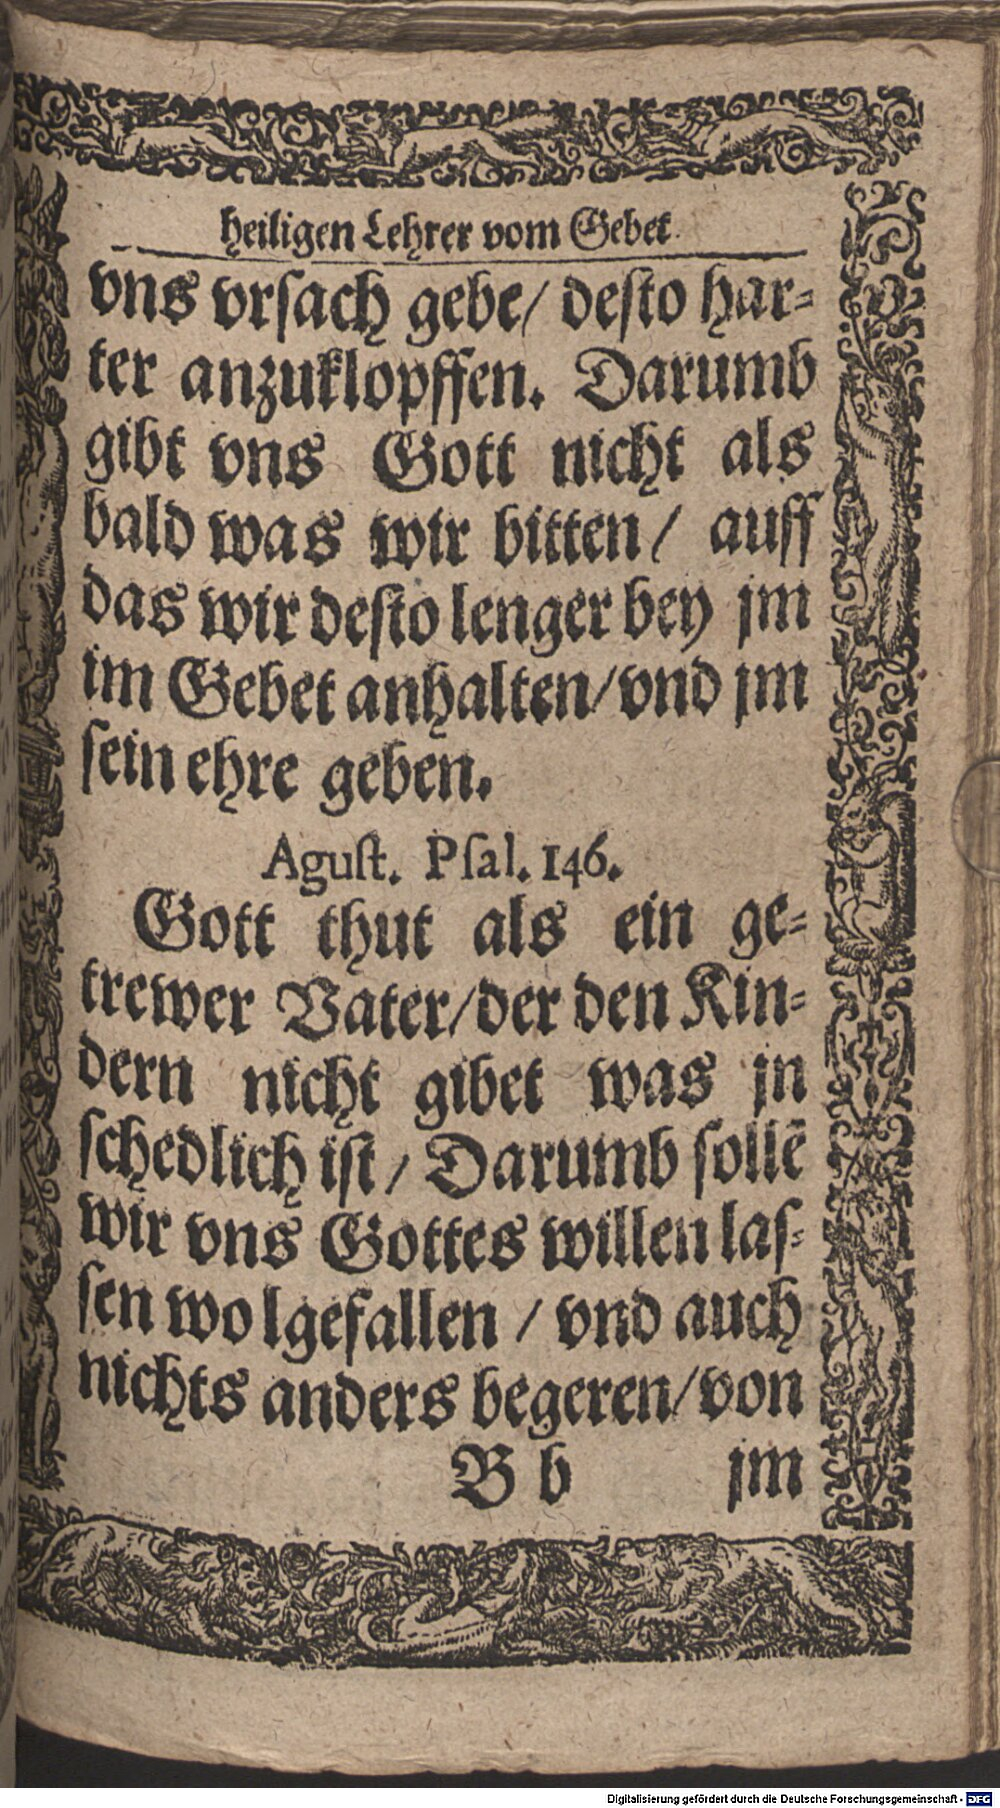 heiligen Lehrer vom Gebet.
vns vrsach gebe/ desto har-
ter anzuklopffen. Darumb
gibt vns Gott nicht als
bald was wir bitten/ auff
das wir desto lenger bey jm
im Gebet anhalten/vnd jm
sein ehre geben.
Agust. Psal. 146.
Gott thut als ein ge-
trewer Vater/der den Kin-
dern nicht gibet was jn
schedlich ist/ Darumb sollē
wir vns Gottes willen las-
sen wolgefallen / vnd auch
nichts anders begeren/von
B b jm
Digitalisierung gefördert durch die Deutsche Forschungsgemeinschaft - DFG